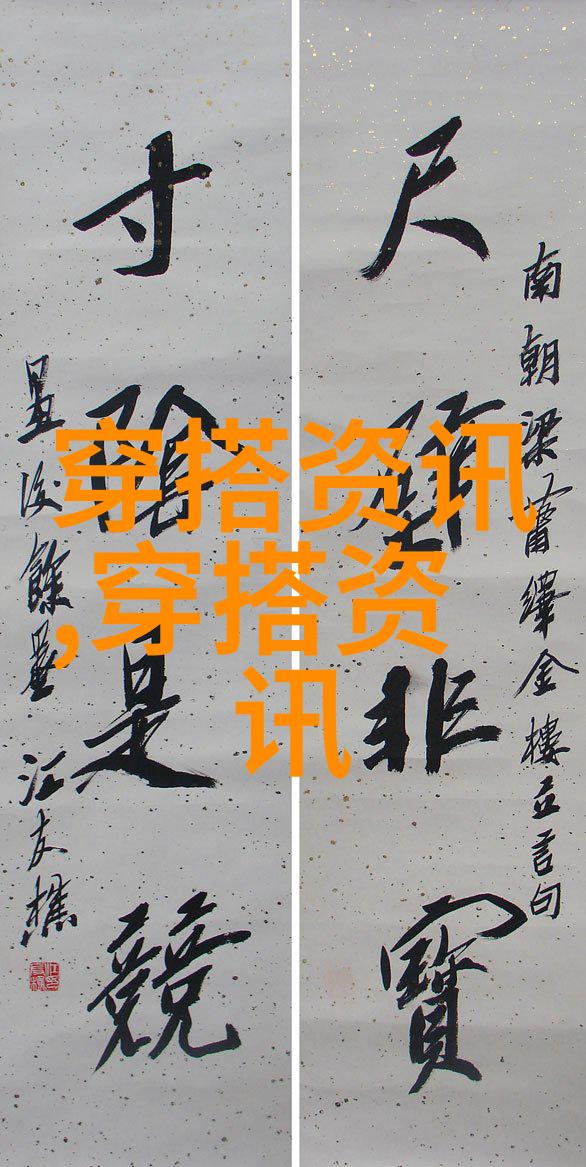 尺璧非寶
南朝梁蕭繹金樓立言句
寸陰是競
餘
友樵
穿搭资讯
,穿搭资
讯